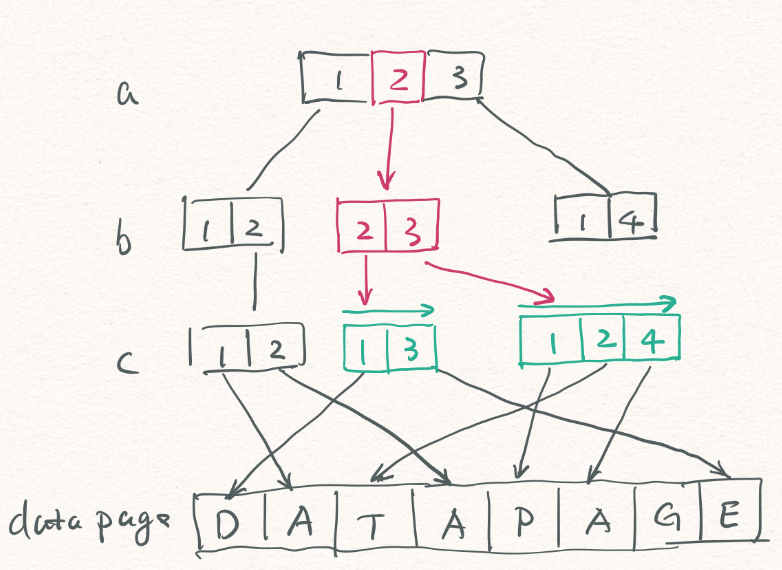 a 1 2 3
b 1 2 2 3 1 4
c 1 2 1 3 1 2 4
data page D A T A P A G E